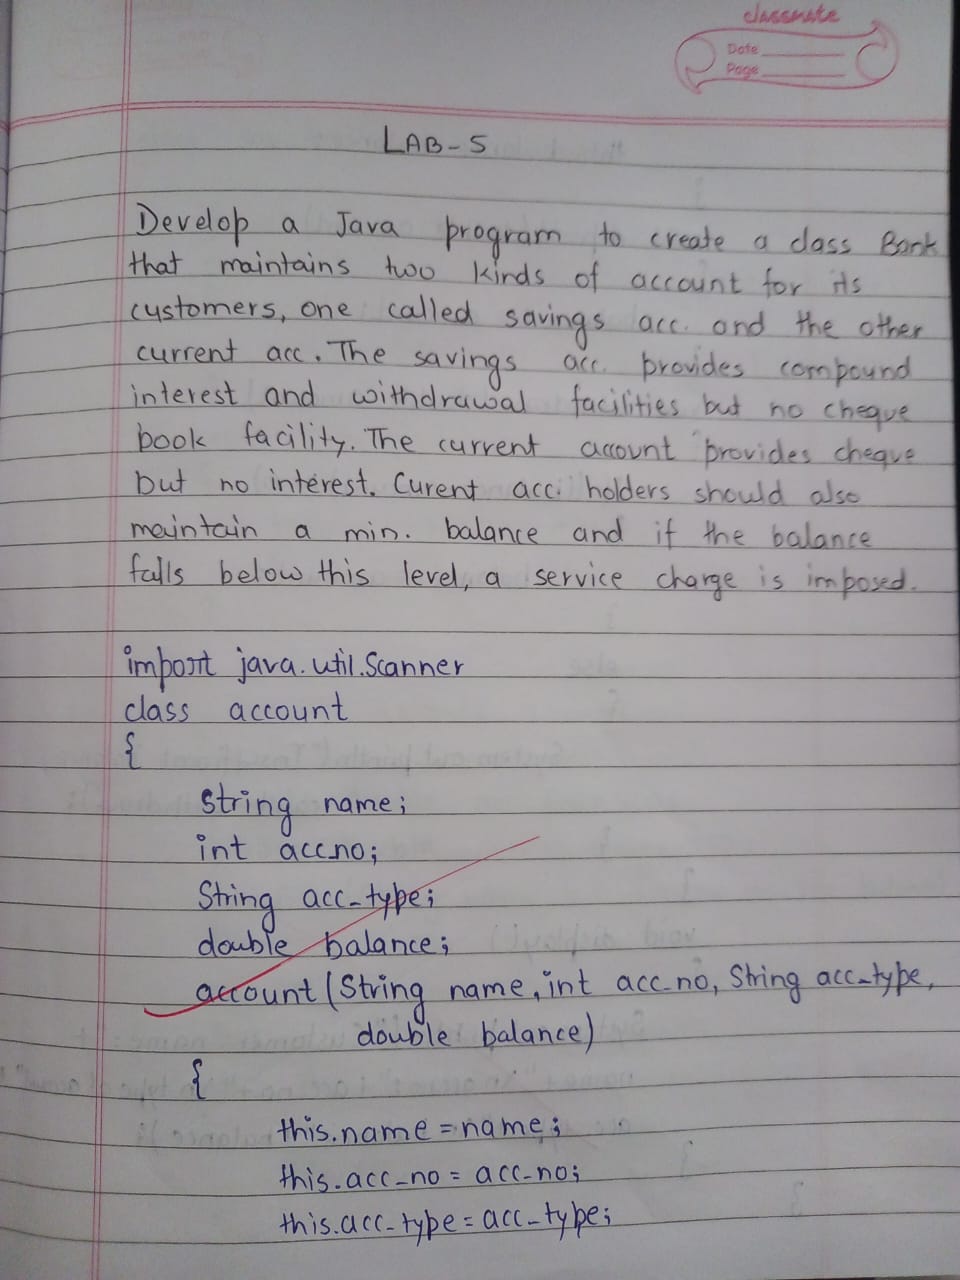 classmate
Date
Page
LAB-5
Develop a Java program to create a class Bank
that maintains two kinds of account for its
customers, one called savings acc. and the other
current acc. The savings acc. provides compound
interest and withdrawal facilities but no cheque
book facility. The current account provides cheque
but no interest. Curent acc. holders should also
maintain a min. balance and if the balance
falls below this level, a service charge is imposed.
import java.util.Scanner
class account
{
String name;
int acc_no;
String acc_type;
double balance;
account (String name, int acc_no, String acc_type,
double balance)
{
this.name = name;
this.acc_no = acc_no;
this.acc_type = acc_type;